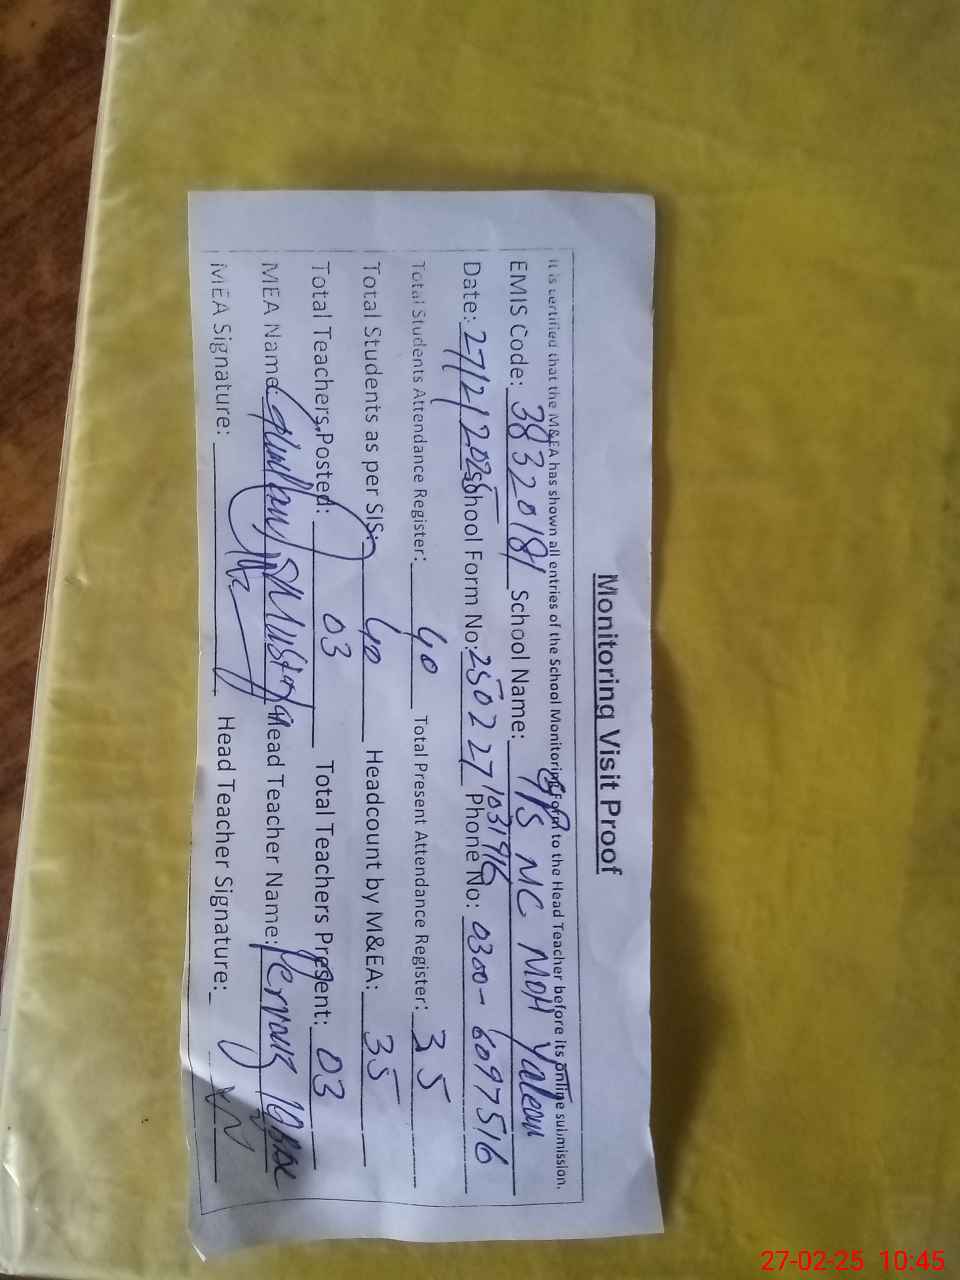 Monitoring Visit Proof
It is certified that the M&EA has shown all entries of the School Monitoring Form to the Head Teacher before its online submission.
EMIS Code: 38320181 School Name: GPS MC MOH
Date: 27/2/2025 School Form No: 250227103196 Phone No: 0300-6097516
Total Students Attendance Register: 40 Total Present Attendance Register: 35
Total Students as per SIS: 40 Headcount by M&EA: 35
Total Teachers Posted: 03 Total Teachers Present: 03
MEA Name: Head Teacher Name:
MEA Signature: Head Teacher Signature:
27-02-25 10:45